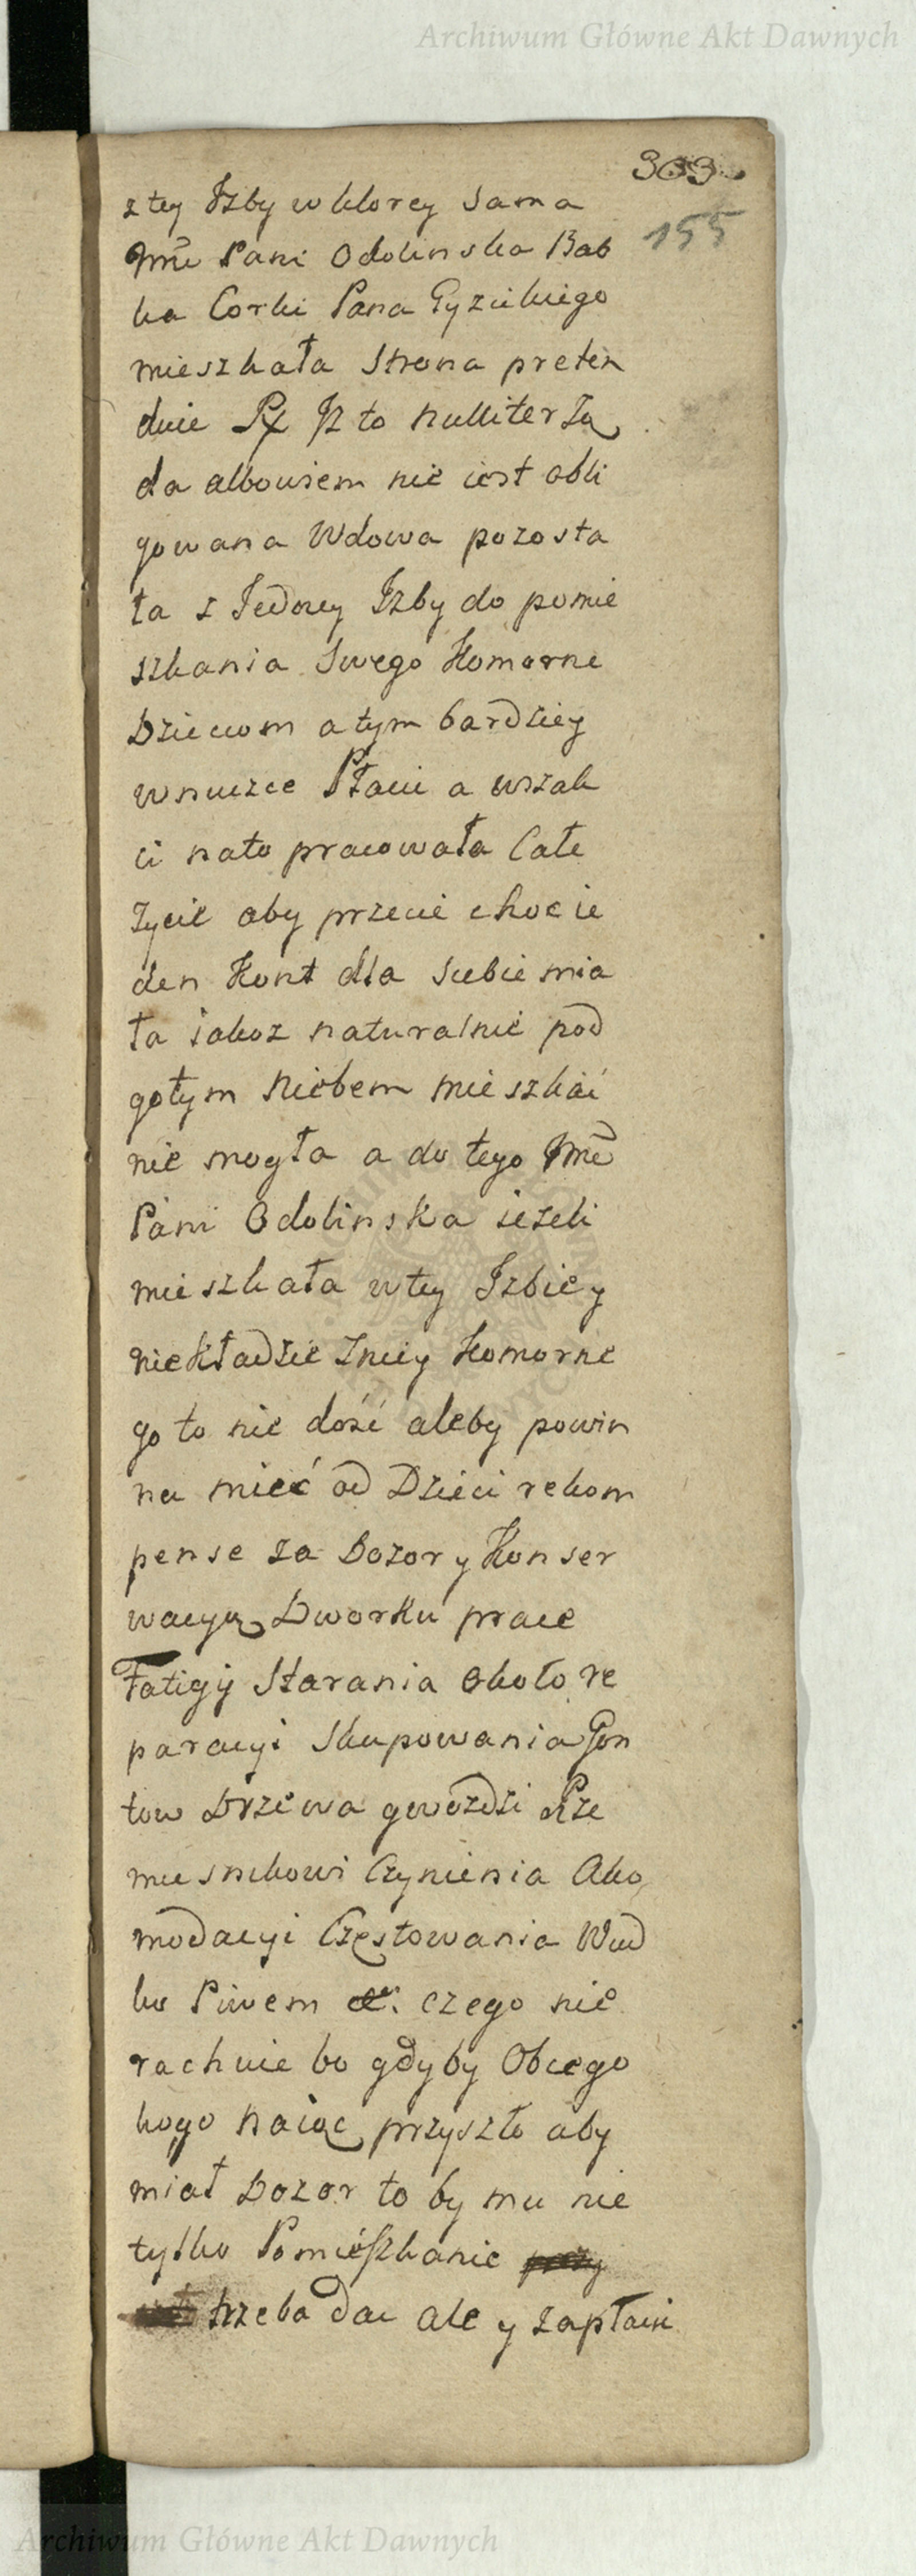 Archiwum Główne Akt Dawnych
303
155
z tey Jzby w ktorey sama
Jmć Pani Odolinska Bab
ka Corki Pana Pyzickiego
mieszkała Strona preten
duie Rx Jz to nulliter Żą
da albowiem nie iest obli
gowana Wdowa pozosta
ła z Jedney Jzby do pomie
szkania Swego Komorne
Dzieciom a tym bardziey
wnuczce Płacic a wszak
ci nato pracowała Całe
Zycie aby przecie choc ie
den Kont dla siebie mia
ła iakoz naturalnie pod
gołym Niebem mieszkać
nie mogła a do tego Jmć
Pani Odolinska iezeli
mieszkała w tey Izbie y
niekładzie Zniey Komorne
go to nie dość aleby powin
na mieć od Dzieci rekom
pense za Dozor y Konser
wacyą Dworku prace
Fatigÿ Starania około re
paracyi Skupowania Gon
tow Drzewa gwozdzi Rze
miesnikowi Czynienia Ako
modacyi Częstowania Wod
ko Piwem czego nie
rachuie bo gdyby Obcego
kogo naiąc przyszło aby
miał Dozor to by mu nie
tylko Pomieszkanie przy
trzeba dac ale y zapłacic
Archiwum Główne Akt Dawnych